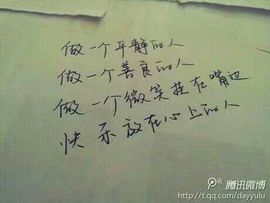 做一个平静的人
做一个善良的人
做一个微笑挂在嘴边
快乐放在心上的人
腾讯微博
http://t.qq.com/dayyulu